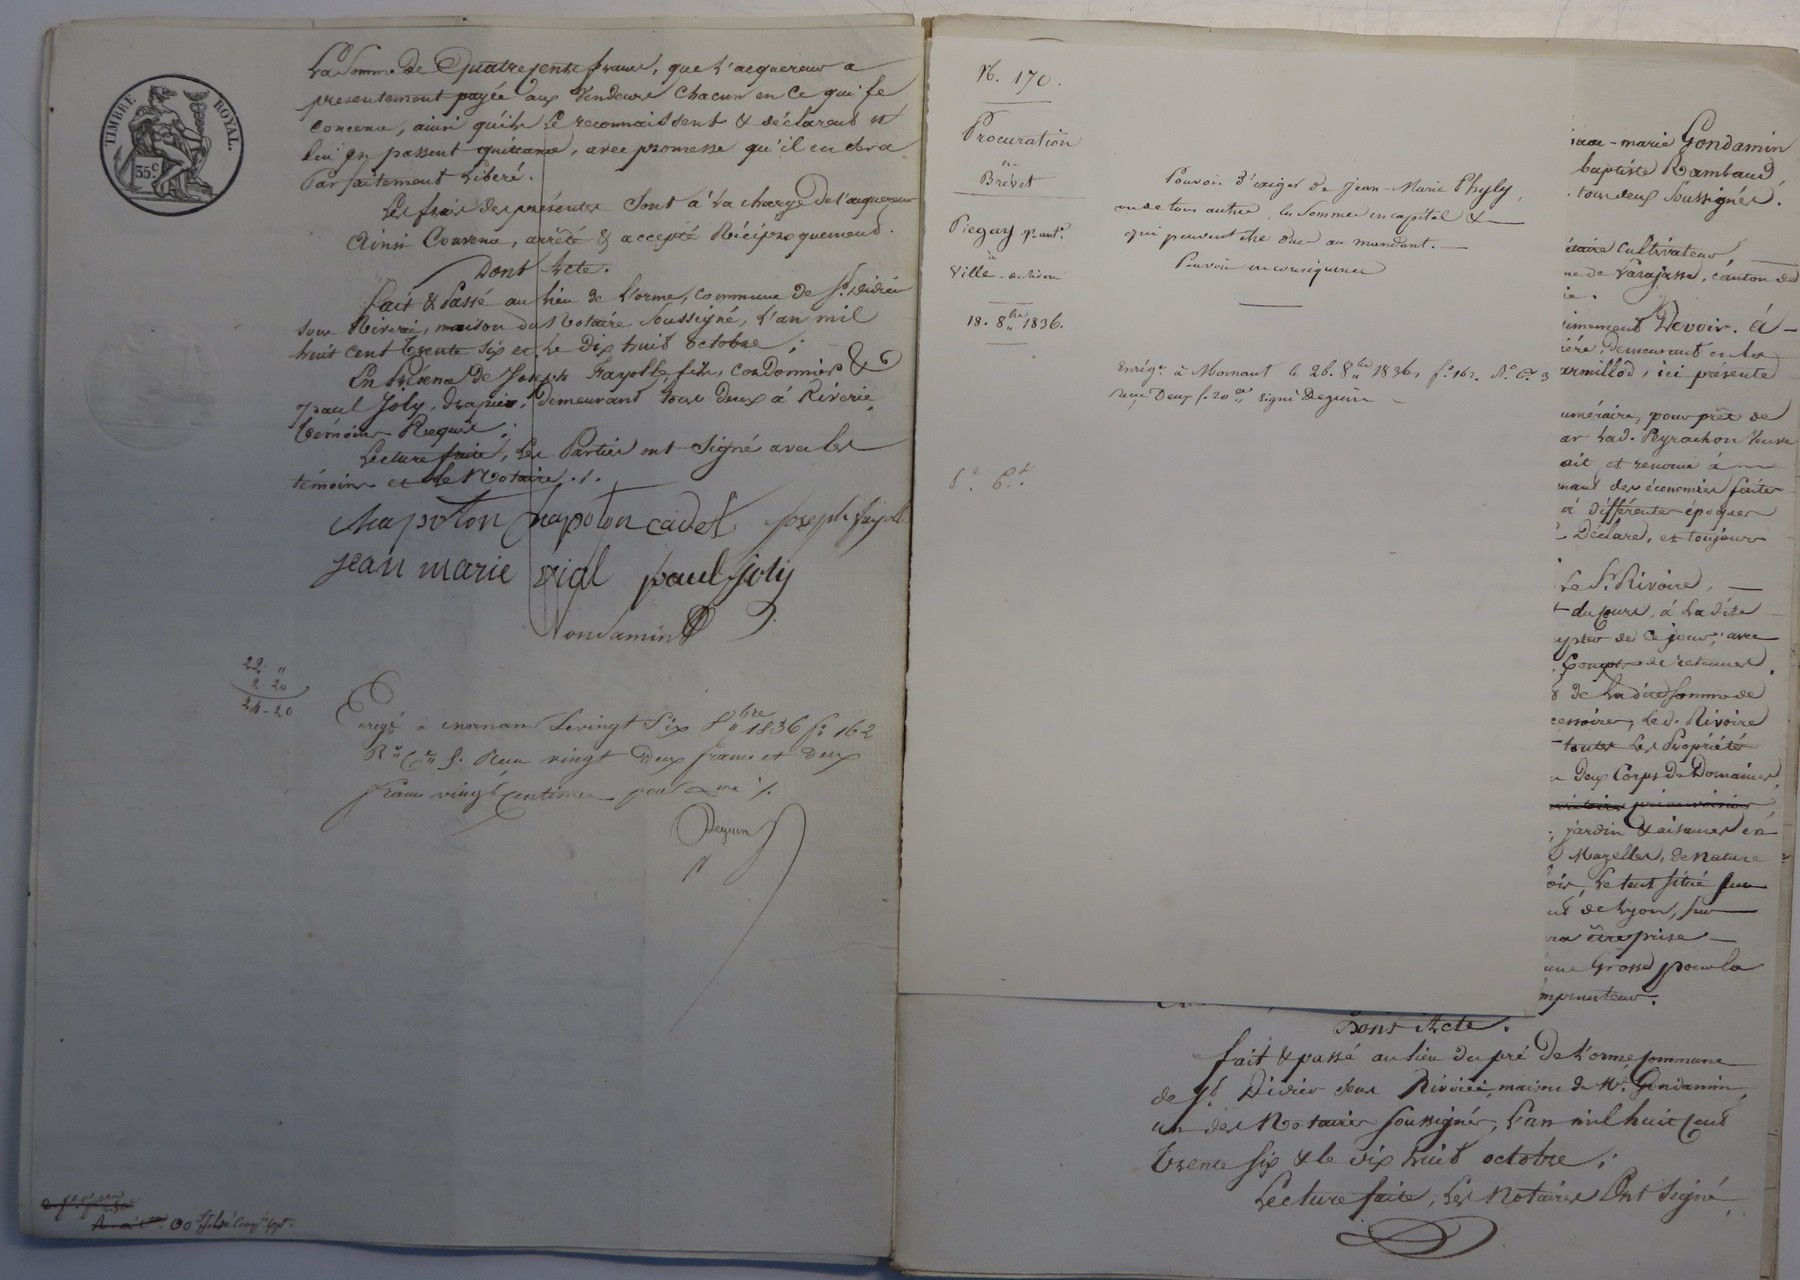 TIMBRE ROYAL.
35 c.
La Somme de Quatre cents francs, que l'acquereur a
presentement payée aux Vendeurs chacun en ce qui le
concerne, ainsi qu'ils le reconnaissent & déclarent et
lui en passent quittance, avec promesse qu'il en sera
Parfaitement Libéré.
Les frais des présentes sont à la charge de l'acquereur
Ainsi Convenu, arrêté & accepté Réciproquement.
Dont Acte.
fait & Passé au lieu de l'orme, commune de St. Didier
sous Riverie, maison du Notaire soussigné, l'an mil
huit cent trente six et le dix huit octobre ;
En Présence de Joseph Fayolle, fils, cordonnier &
paul Joly, drapier, demeurant tous deux à Riverie,
témoins Requis ;
Lecture faite, les Parties ont signé avec les
témoins et le Notaire ./.
chapoton chapoton cadet joseph fayolle
jean marie vial paul joly
Gondamin
22 "
2 20
24-20
Enregé à mornant le vingt six 8bre 1836 fo 162
Ro Ce 5. Reçu vingt deux francs et deux
francs vingt centimes pour
Deguin
N. 170.
Procuration
en
Brevet
Piegay
à
Ville
18. 8bre 1836.
Pouvoir d'exiger de Jean-Marie Phyly,
ou de tous autres, les sommes en capital &
qui peuvent être dues au mandant.
Pouvoir en conséquence
Enrégé à Mornant le 26. 8bre 1836, fo 162. Ro Ce 3
Reçu Deux f. 20 ces signé Deguin
-marie Gondamin
baptiste Rambaud,
tous deux soussignés.
cultivateur,
de Larajasse, canton de
Devoir. à
demeurant en la
armillod, ici présente
numéraire, pour prêt de
lad. Peyrachon Veuve
et renoncé à
des économies faites
à différentes époques
Déclare, et toujours
Le Sr. Rivoire,
du jours, à la dite
de ce jour, avec
de retenues
de la dite somme de
led. Rivoire
toutes les Propriétés
Deux Corps de Domaines,
jardin & aisances en
Mazelles, de nature
Le tout situé sur
de Lyon, sur
être prise
une Grosse pour la
emprunteur.
Dont Acte.
fait & passé au lieu du pré de l'orme commune
de St. Didier sous Riverie, maison de Me. Gondamin,
un des Notaires soussignés, l'an mil huit cent
trente six & le dix huit octobre ;
Lecture faite, Les Notaires Ont signé,